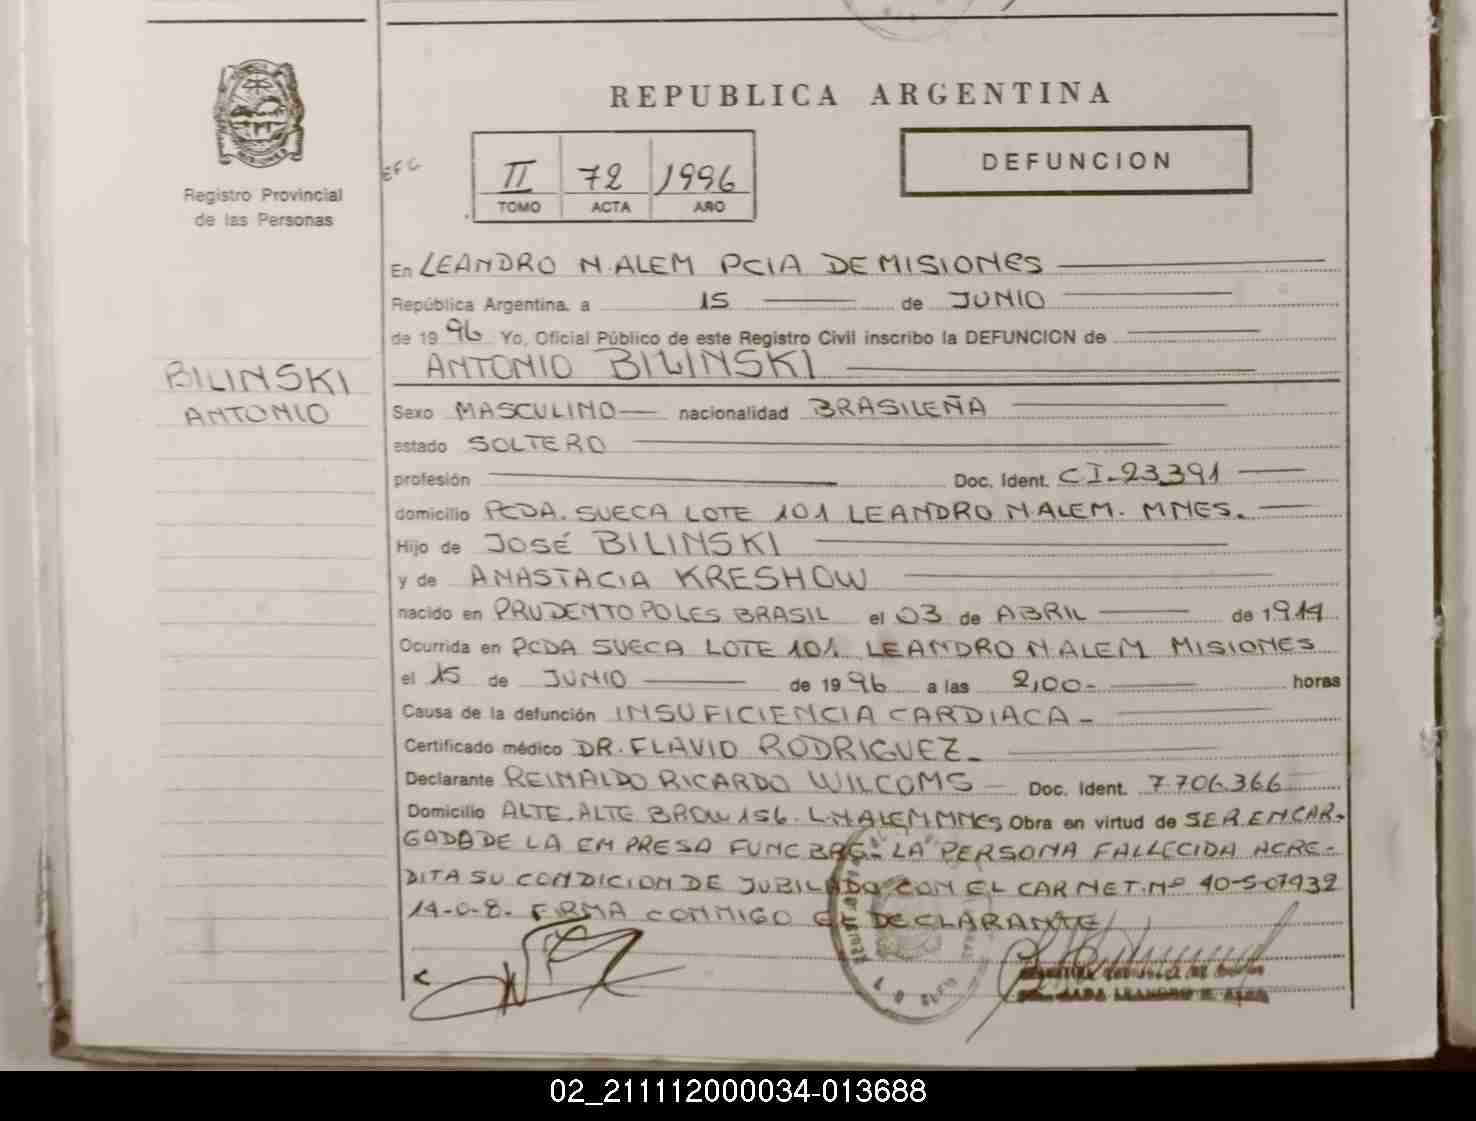 REPUBLICA ARGENTINA
Registro Provincial
de las Personas
II 72 1996
TOMO ACTA AÑO
DEFUNCION
En LEANDRO N. ALEM PCIA DE MISIONES
República Argentina, a 15 de JUNIO
de 19 96 Yo, Oficial Público de este Registro Civil inscribo la DEFUNCION de
ANTONIO BILINSKI
BILINSKI
ANTONIO
Sexo MASCULINO nacionalidad BRASILEÑA
estado SOLTERO
profesión Doc. Ident. CI-23391
domicilio PCDA. SUECA LOTE 101 LEANDRO N ALEM. MNES.
Hijo de JOSÉ BILINSKI
y de ANASTACIA KRESHOW
nacido en PRUDENTOPOLES BRASIL el 03 de ABRIL de 1919
Ocurrida en PCDA SUECA LOTE 101 LEANDRO N ALEM MISIONES
el 15 de JUNIO de 19 96 a las 2,00- horas
Causa de la defunción INSUFICIENCIA CARDIACA-
Certificado médico DR. FLAVIO RODRIGUEZ-
Declarante REINALDO RICARDO WILCOMS Doc. Ident. 7.706.366
Domicilio ALTE. ALTE BROW 156. L.N ALEM MNES Obra en virtud de SER ENCAR-
GADA DE LA EMPRESA FUNEBRE.- LA PERSONA FALLECIDA ACRE-
DITA SU CONDICION DE JUBILADO CON EL CARNET. Nº 40-5-07932
14-0-8. FIRMA CONMIGO EL DECLARANTE
02_211112000034-013688